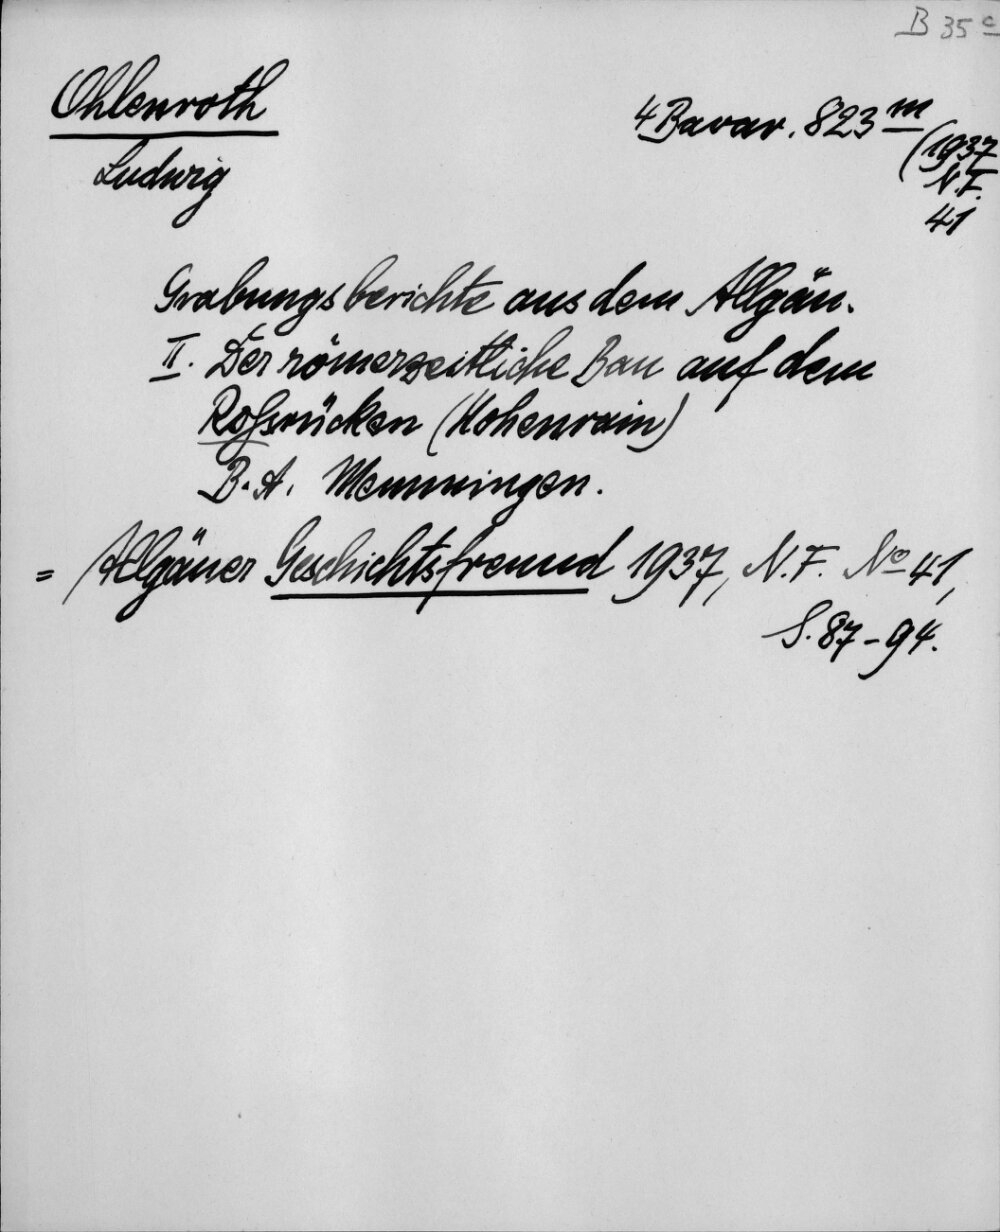 B 35 c
Ohlenroth
4 Bavar. 823 m
(1937
N.F.
41
Ludwig
Grabungsberichte aus dem Allgäu.
II. Der römerzeitliche Bau auf dem
Roßrücken (Hohenrain)
B.A. Memmingen.
= Allgäuer Geschichtsfreund 1937, N.F. No 41,
S. 87-94.